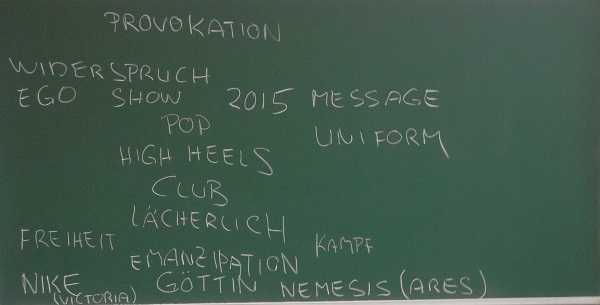 PROVOKATION
WIDERSPRUCH
EGO SHOW 2015 MESSAGE
POP
UNIFORM
HIGH HEELS
CLUB
LÄCHERLICH
FREIHEIT
KAMPF
EMANZIPATION
NIKE GÖTTIN NEMESIS (ARES)
(VICTORIA)